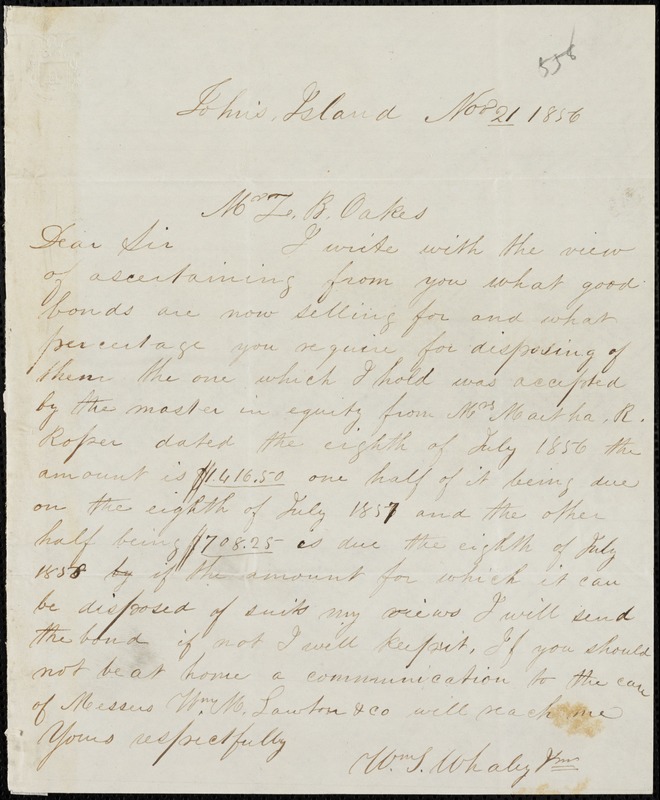 558
Johns, Island Nov 21 1856
Mr Z. B. Oakes
Dear Sir I write with the view
of ascertaining from you what good
bonds are now selling for and what
percentage you require for disposing of
them the one which I hold was accepted
by the master in equity from Mrs Martha R.
Roper dated the eighth of July 1856 the
amount is $1416.50 one half of it being due
on the eighth of July 1857 and the other
half being $708.25 is due the eighth of July
1858 by if the amount for which it can
be disposed of suits my views I will send
the bond if not I will keep it. If you should
not be at home a communication to the care
of Messers Wm M. Lawton & co will reach me
Yours respectfully
Wm S. Whaley